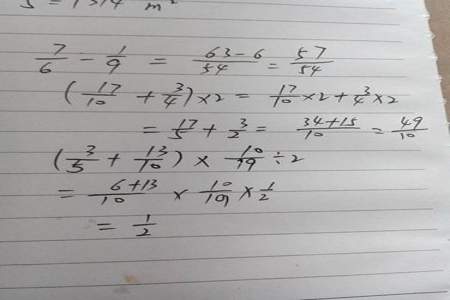 7/6 - 1/9 = 63-6/54 = 57/54
(17/10 + 3/4) × 2 = 17/10 × 2 + 3/4 × 2
= 17/5 + 3/2 = 34+15/10 = 49/10
(3/5 + 13/10) × 10/19 ÷ 2
= 6+13/10 × 10/19 × 1/2
= 1/2